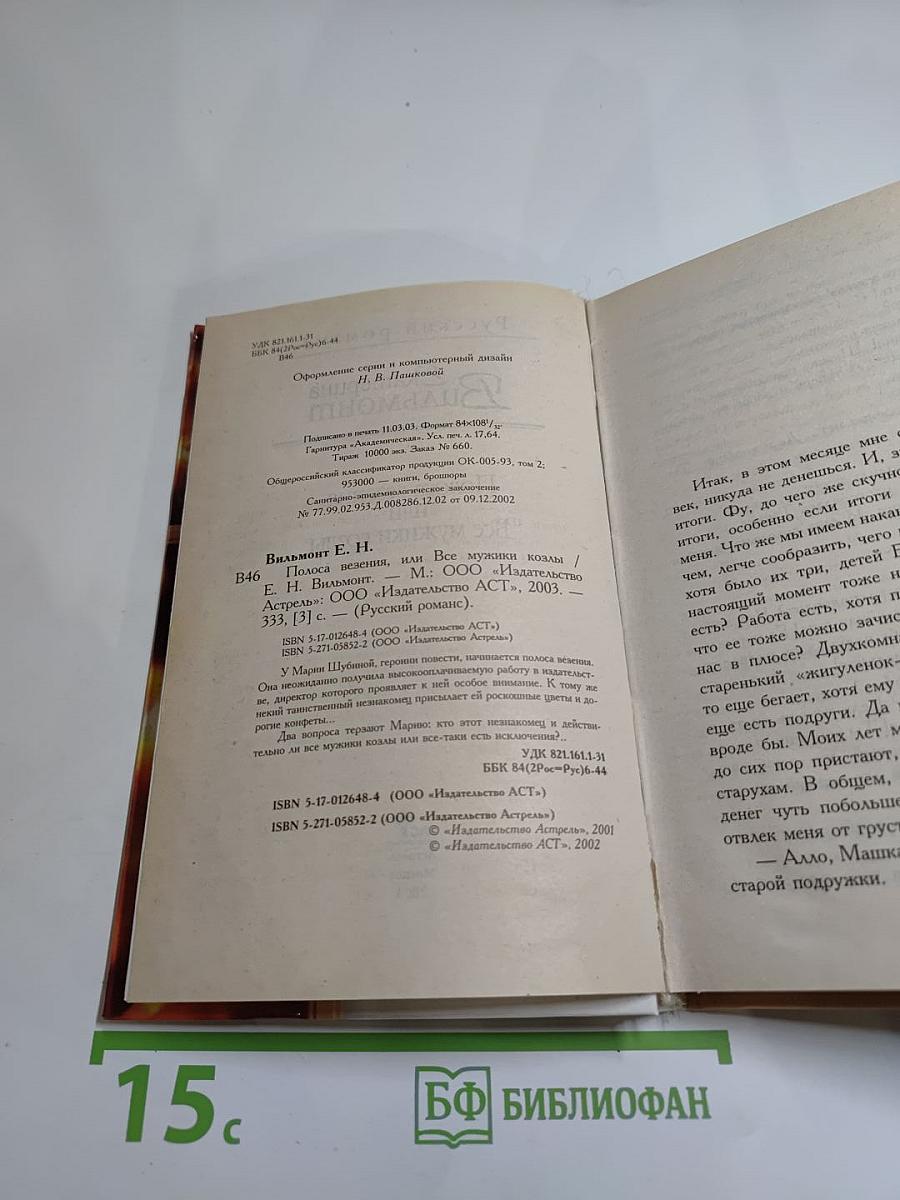 УДК 821.161.1-31
ББК 84(2Рос=Рус)6-44
В46
Оформление серии и компьютерный дизайн
Н. В. Пашковой
Подписано в печать 11.03.03. Формат 84×108 1/32.
Гарнитура «Академическая». Усл. печ. л. 17,64.
Тираж 10000 экз. Заказ № 660.
Общероссийский классификатор продукции ОК-005-93, том 2;
953000 — книги, брошюры
Санитарно-эпидемиологическое заключение
№ 77.99.02.953.Д.008286.12.02 от 09.12.2002
Вильмонт Е. Н.
В46 Полоса везения, или Все мужики козлы /
Е. Н. Вильмонт. — М.: ООО «Издательство
Астрель»: ООО «Издательство АСТ», 2003. —
333, [3] с. — (Русский романс).
ISBN 5-17-012648-4 (ООО «Издательство АСТ»)
ISBN 5-271-05852-2 (ООО «Издательство Астрель»)
У Марии Шубиной, героини повести, начинается полоса везения.
Она неожиданно получила высокооплачиваемую работу в издательст-
ве, директор которого проявляет к ней особое внимание. К тому же
некий таинственный незнакомец присылает ей роскошные цветы и до-
рогие конфеты...
Два вопроса терзают Марию: кто этот незнакомец и действи-
тельно ли все мужики козлы или все-таки есть исключения?..
УДК 821.161.1-31
ББК 84(2Рос=Рус)6-44
ISBN 5-17-012648-4 (ООО «Издательство АСТ»)
ISBN 5-271-05852-2 (ООО «Издательство Астрель»)
© «Издательство Астрель», 2001
© «Издательство АСТ», 2002
Итак, в этом месяце мне
век, никуда не денешься. И,
итоги. Фу, до чего же скучно
итоги, особенно если итоги
меня. Что же мы имеем
чем, легче сообразить, чего
хотя было их три, детей
настоящий момент тоже
есть? Работа есть, хотя
что ее тоже можно
нас в плюсе?
старенький «жигуленок-
то еще бегает, хотя ему
еще есть подруги. Да
вроде бы. Моих лет
до сих пор пристают,
старухам. В общем,
денег чуть побольше
отвлек меня от
— Алло, Машка
старой подружки.
15 с
БФ БИБЛИОФАН